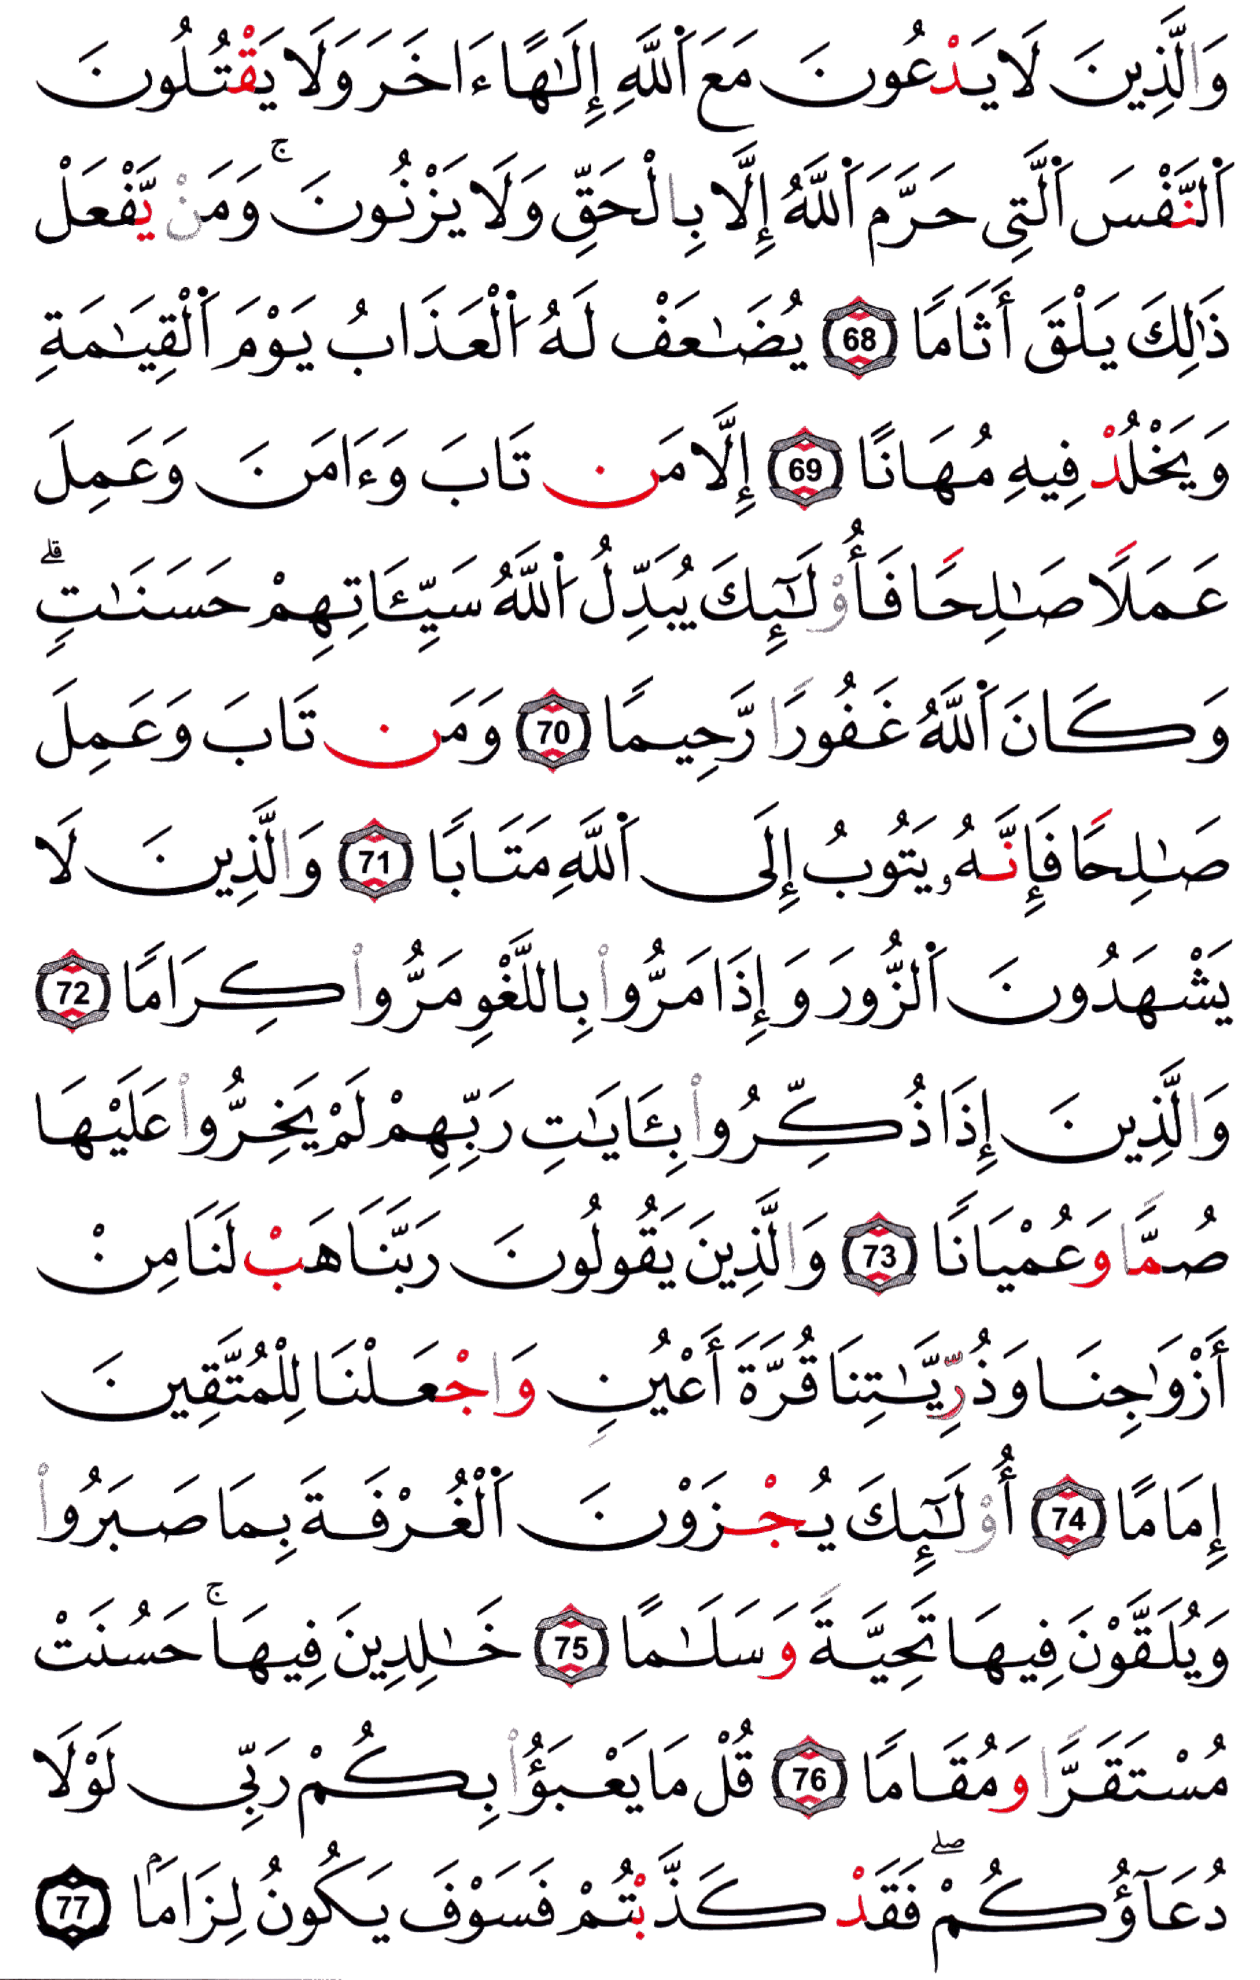 وَالَّذِينَ لَا يَدْعُونَ مَعَ ٱللَّهِ إِلَـٰهًا ءَاخَرَ وَلَا يَقْتُلُونَ
ٱلنَّفْسَ ٱلَّتِى حَرَّمَ ٱللَّهُ إِلَّا بِالْحَقِّ وَلَا يَزْنُونَ ۚ وَمَنْ يَّفْعَلْ
ذَٰلِكَ يَلْقَ أَثَامًا 68 يُضَـٰعَفْ لَهُ ٱلْعَذَابُ يَوْمَ ٱلْقِيَـٰمَةِ
وَيَخْلُدْ فِيهِ مُهَانًا 69 إِلَّا مَن تَابَ وَءَامَنَ وَعَمِلَ
عَمَلًا صَـٰلِحًا فَأُوْلَـٰٓئِكَ يُبَدِّلُ ٱللَّهُ سَيِّـَٔاتِهِمْ حَسَنَـٰتٍ ۗ
وَكَانَ ٱللَّهُ غَفُورًا رَّحِيمًا 70 وَمَن تَابَ وَعَمِلَ
صَـٰلِحًا فَإِنَّهُۥ يَتُوبُ إِلَى ٱللَّهِ مَتَابًا 71 وَالَّذِينَ لَا
يَشْهَدُونَ ٱلزُّورَ وَإِذَا مَرُّوا۟ بِاللَّغْوِ مَرُّوا۟ كِرَامًا 72
وَالَّذِينَ إِذَا ذُكِّرُوا۟ بِـَٔايَـٰتِ رَبِّهِمْ لَمْ يَخِرُّوا۟ عَلَيْهَا
صُمًّا وَعُمْيَانًا 73 وَالَّذِينَ يَقُولُونَ رَبَّنَا هَبْ لَنَا مِنْ
أَزْوَٰجِنَا وَذُرِّيَّـٰتِنَا قُرَّةَ أَعْيُنٍ وَاجْعَلْنَا لِلْمُتَّقِينَ
إِمَامًا 74 أُوْلَـٰٓئِكَ يُجْزَوْنَ ٱلْغُرْفَةَ بِمَا صَبَرُوا۟
وَيُلَقَّوْنَ فِيهَا تَحِيَّةً وَسَلَـٰمًا 75 خَـٰلِدِينَ فِيهَا ۚ حَسُنَتْ
مُسْتَقَرًّا وَمُقَامًا 76 قُلْ مَا يَعْبَؤُا۟ بِكُمْ رَبِّى لَوْلَا
دُعَآؤُكُمْ ۖ فَقَدْ كَذَّبْتُمْ فَسَوْفَ يَكُونُ لِزَامًۢا 77